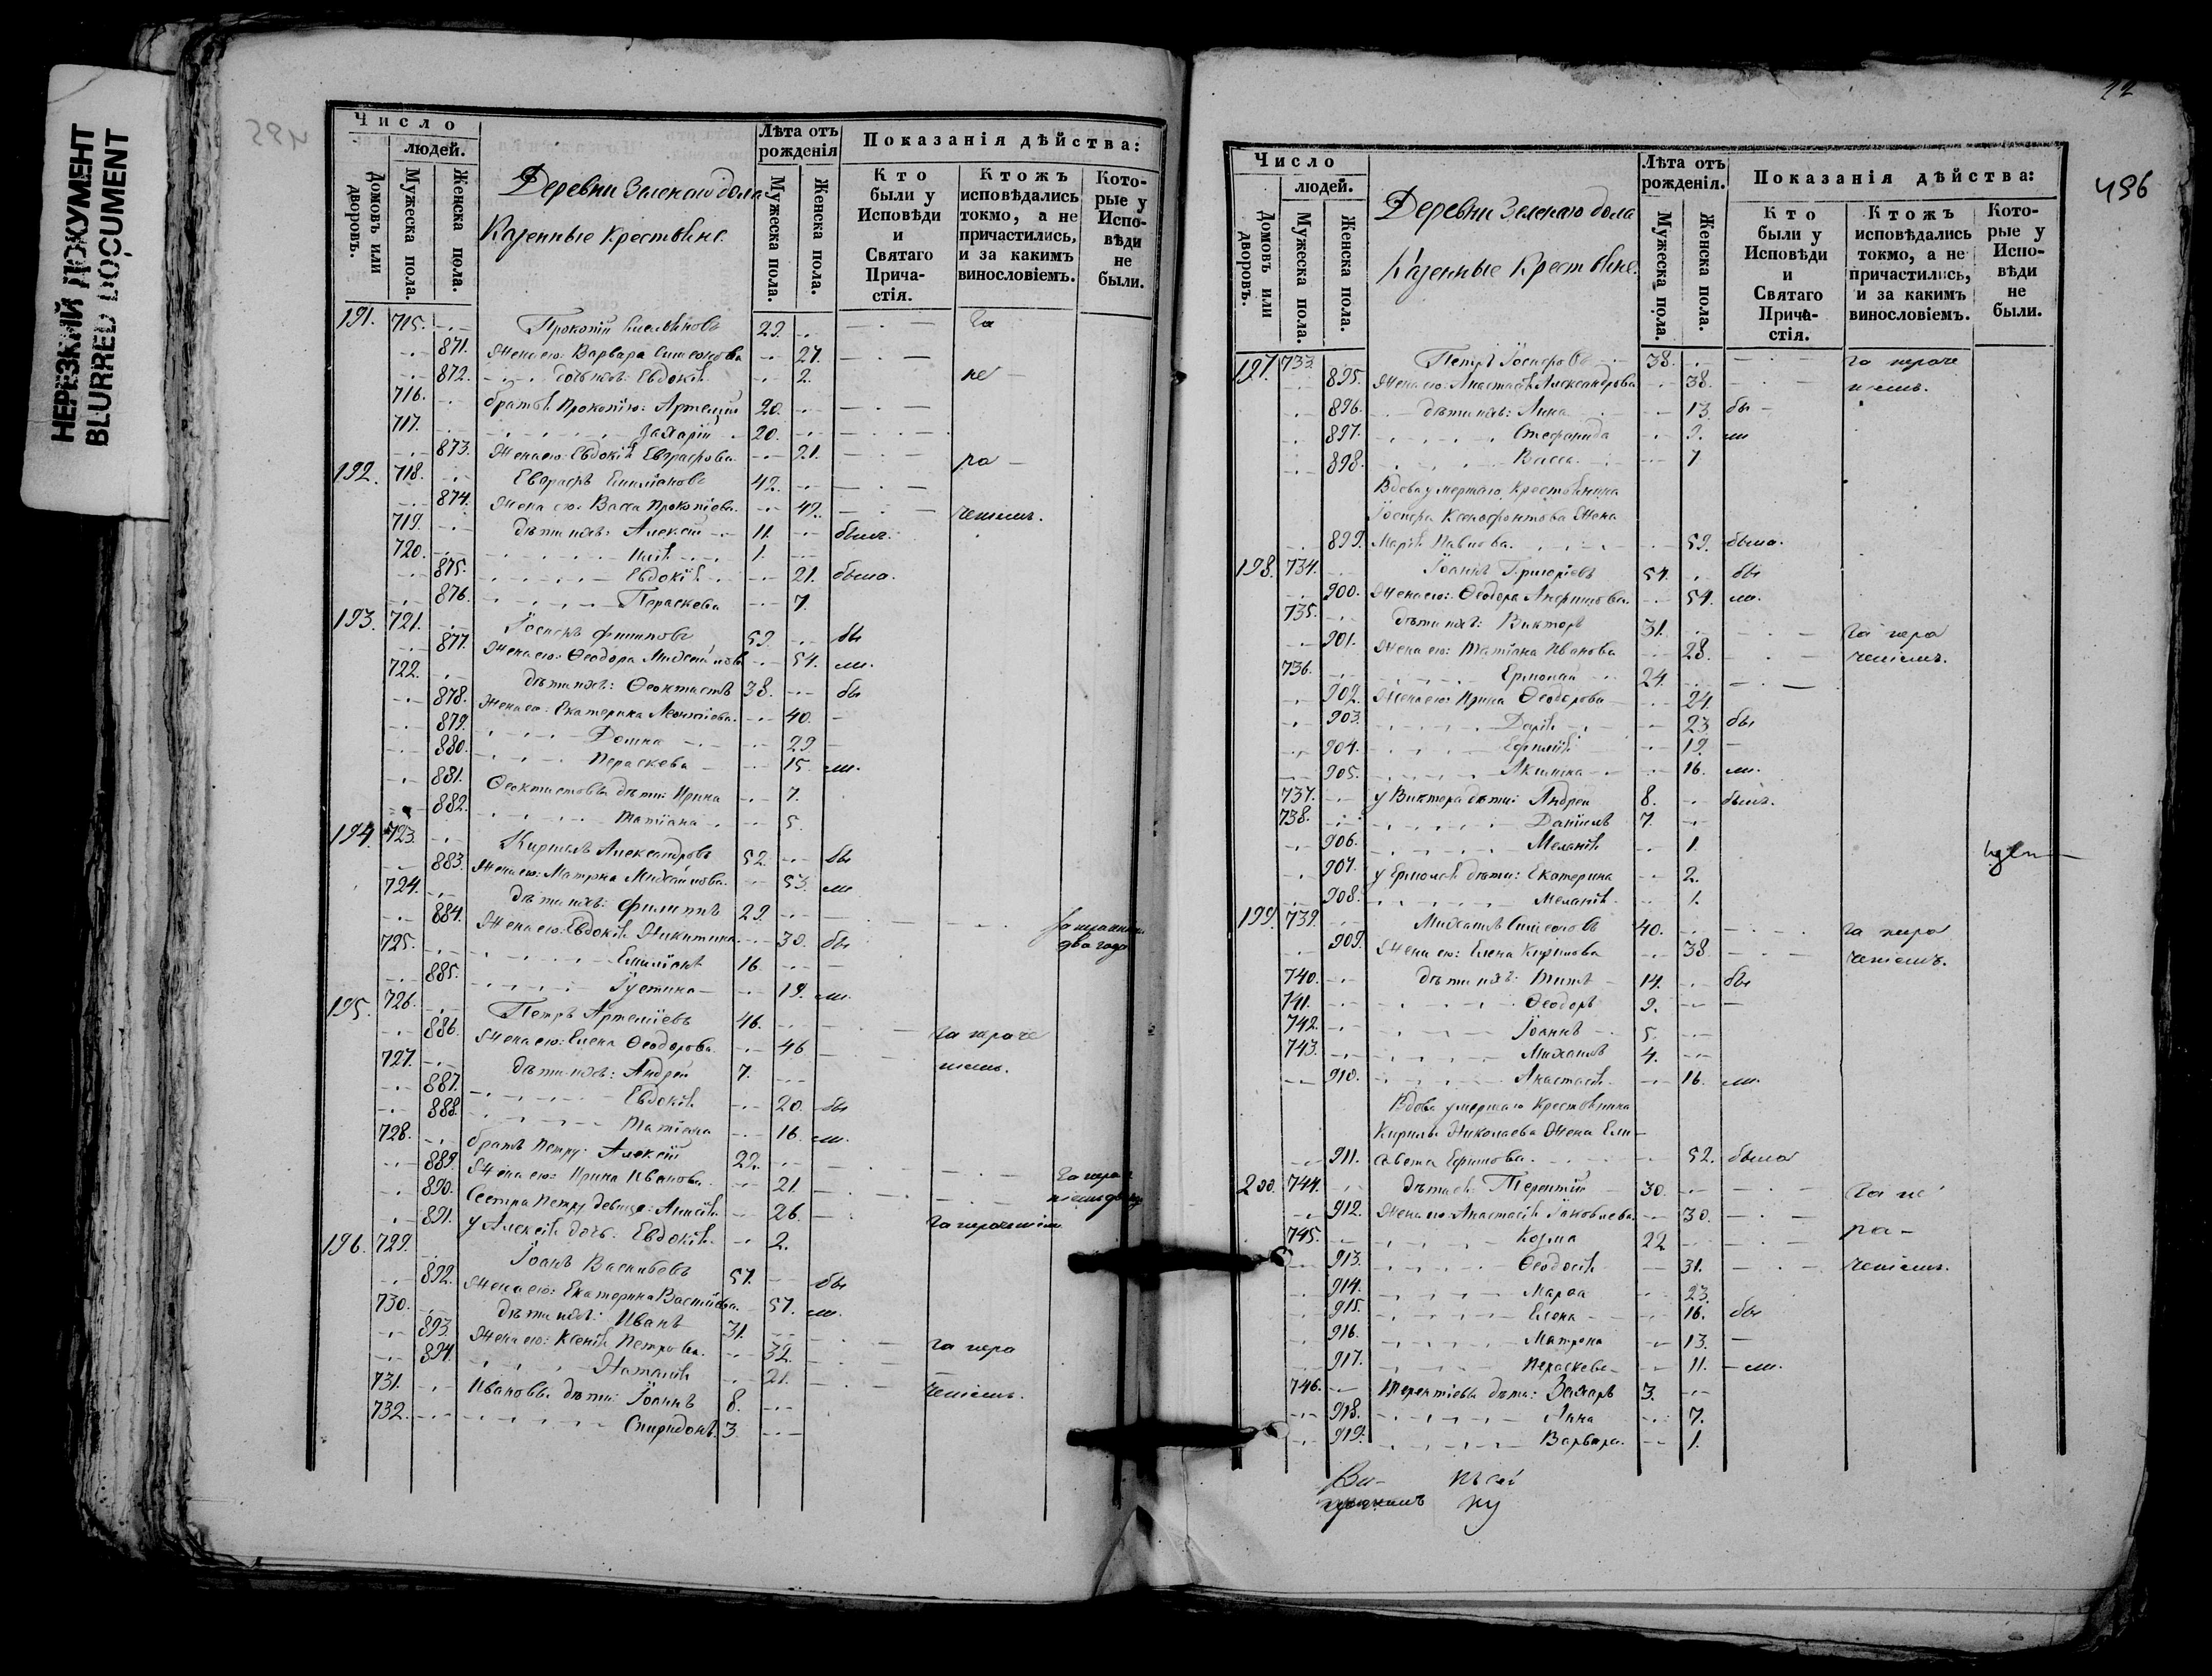 НЕРЕЗКИЙ ДОКУМЕНТ
BLURRED DOCUMENT
Число
людей.
Домовъ или дворовъ.
Мужеска пола.
Женска пола.
Деревни Зеленаго дола
Казенные Крестьяне.
Лѣта отъ рожденія
Мужеска пола.
Женска пола.
Показанія дѣйства:
Кто были у Исповѣди и Святаго Причастія.
Ктожъ исповѣдались токмо, а не причастились, и за какимъ винословіемъ.
Которые у Исповѣди не были.
191. 715. Прокопій Емельяновъ 29. За
871. Жена его: Варвара Симеонова 27.
872. дочь ихъ: Евдокія 2. не
716. братья Прокопію: Артемій 20.
717. Захарій 20.
873. Жена его: Евдокія Евграфова 21. ра
192. 718. Евграфъ Емиліановъ 42.
874. Жена его: Васса Прокопіева 42. ченіемъ.
719. дѣти ихъ: Алексій 11. былъ.
720. Илія 1.
875. Евдокія 21. была.
876. Параскева 7.
193. 721. Іосифъ Филиповъ 59. бы
877. Жена его: Ѳеодора Михайлова 54. ли.
722. дѣти ихъ: Ѳеоктистъ 38. бы
878. Жена его: Екатерина Леонтіева 40.
879. Домна 29
880. Параскева 15. ли.
881. Ѳеоктистовы дѣти: Ирина 7.
882. Татіана 5.
194. 723. Кирилъ Александровъ 52. бы
883. Жена его: Матрона Михайлова. 53. ли
724. дѣти ихъ: Филиппъ 29.
884. Жена его: Евдокія Никитина 30. бы два года
725. Емиліанъ 16.
885. Іустина 19. ли.
195. 726. Петръ Артеміевъ 46.
886. Жена его: Елена Ѳеодорова 46 За нераче
727. дѣти ихъ: Андрей 7. ніемъ.
887. Евдокія 20. бы
888. Татіана 16. ли.
728. братъ Петру: Алексій 22.
889. Жена его: Ирина Иванова 21.
890. Сестра Петру девица: Анисія 26. За нераченіемъ
891. у Алексія дочь: Евдокія 2.
196. 729. Іоанъ Васильевъ 57. бы
892. Жена его: Екатерина 57. ли.
730. дѣти ихъ: Иванъ 31.
893. Жена его: Ксенія Петрова. 32. За нера
894. Наталія 21.
731. Ивановы дѣти: Іоаннъ 8. ченіемъ.
732. Спиридонъ. 3.
22
496
Число
людей.
Домовъ или дворовъ.
Мужеска пола.
Женска пола.
Деревни Зеленаго дола
Казенные Крестьяне.
Лѣта отъ рожденія.
Мужеска пола.
Женска пола.
Показанія дѣйства:
Кто были у Исповѣди и Святаго Причастія.
Ктожъ исповѣдались токмо, а не причастились, и за какимъ винословіемъ.
Которые у Исповѣди не были.
197. 733. Петръ Іосифовъ 38. За нераче
895. Жена его: Анастасія Александрова 38. ніемъ.
896. дѣти ихъ: Анна 13. бы
897. Стефанида 9. ли
898. Васса 7
Вдова умершаго Крестьянина
Іосифа Ксенофонтова Жена
899. Марія Павлова. 59. была.
198. 734. Іоаннъ Григоріевъ 54. бы
900. Жена его: Ѳеодора 54. ли.
735. дѣти ихъ: Викторъ 31. За нера
901. Жена его: Татіана Иванова 28. ченіемъ.
736. Ермолай 24.
902. Жена его: Ирина Ѳеодорова 24.
903. Дарія 23. бы
904. Евфимія 19.
905. Акилина 16. ли.
737. у Виктора дѣти: Андрей 8. былъ.
738. Даніилъ 7.
906. Меланія 1.
907. у Ермолая дѣти: Екатерина 2.
908. Меланія 1.
199. 739. Михаилъ Симеоновъ 40. За нера
909. Жена его: Елена Кирилова 38. ченіемъ.
740. дѣти ихъ: Титъ 14. бы
741. Ѳеодоръ 9.
742. Іоаннъ 5.
743. Михаилъ 4.
910. Анастасія 16. ли.
Вдова умершаго Крестьянина
Кирилы Николаева Жена Ели-
911. савета Ефимова. 52. была
200. 744. дѣти ея: Терентій 30. За не
912. Жена его: Анастасія Іаковлева 30. ра-
745. Козма 22
913. Ѳеодосія 31. ченіемъ.
914. Марѳа 23.
915. Елена 16. бы
916. Матрона 13.
917. Параскева 11. ли.
746. Терентіевы дѣти: Захаръ 3.
918. Анна 7.
919. Варвара. 1.